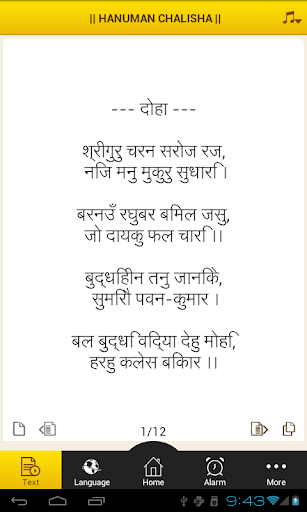 || HANUMAN CHALISHA ||
--- दोहा ---
श्रीगुरु चरन सरोज रज,
नजि मनु मुकुरु सुधारि ।
बरनउँ रघुबर बमिल जसु,
जो दायकु फल चारि ।।
बुद्धिहीन तनु जानकिे,
सुमरिौ पवन-कुमार ।
बल बुद्धि विद्या देहु मोहि,
हरहु कलेस बकिार ।।
1/12
Text Language Home Alarm More
9:43